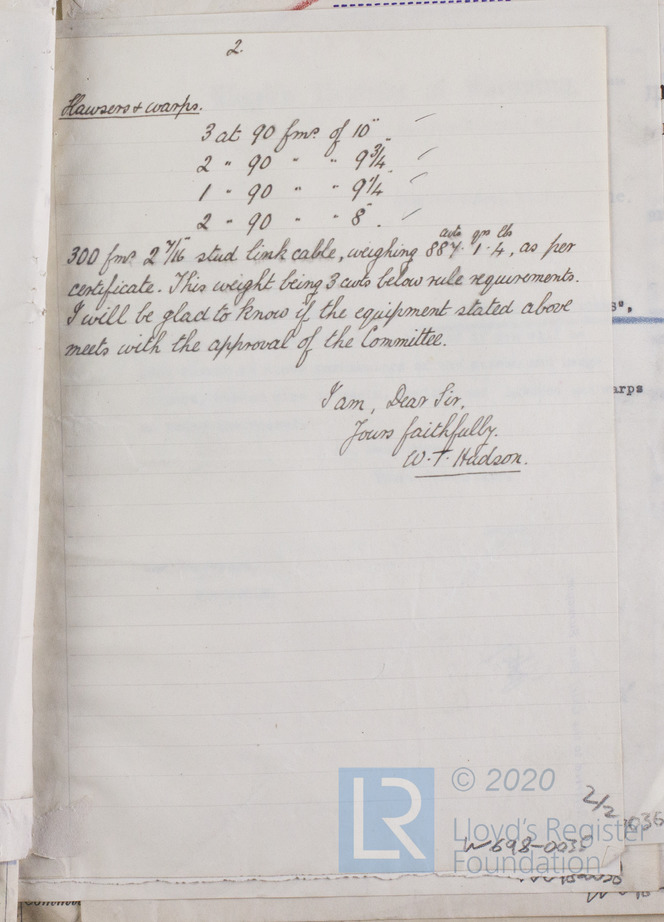 2.
Hawsers & warps.
3 at 90 fms. of 10"
2 " 90 " " 9 3/4"
1 " 90 " " 9 1/4"
2 " 90 " " 8"
cwts qrs lbs
300 fms. 2 7/16 stud link cable, weighing 887. 1. 4, as per
certificate. This weight being 3 cwts below rule requirements.
I will be glad to know if the equipment stated above
meets with the approval of the Committee.
I am, Dear Sir,
Yours faithfully.
W. T. Hudson.
arps
LR
© 2020
Lloyd's Register
Foundation
2/2
W698-0035